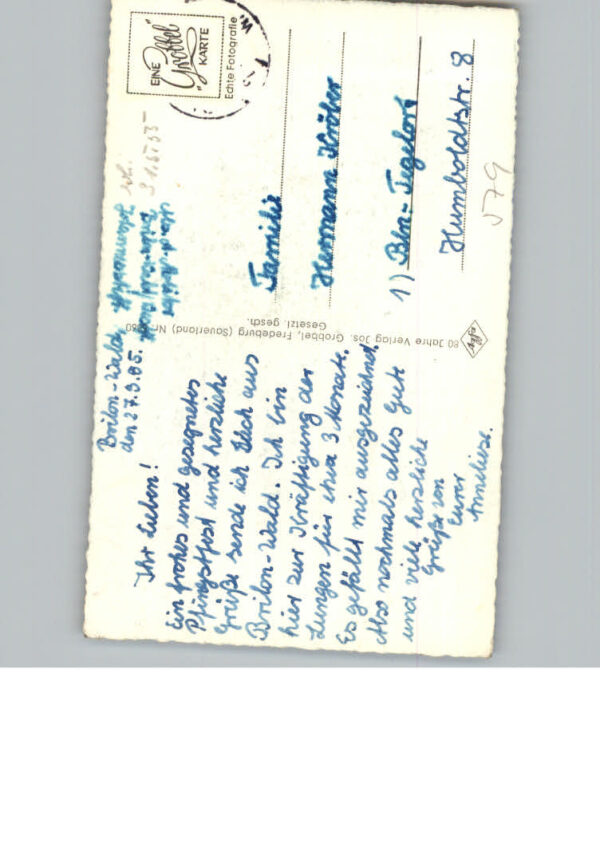 Brilon-Wald,
Ihr Lieben!
Ein frohes und gesegnetes
Pfingstfest und herzliche
Grüße sende ich Euch aus
Brilon-Wald. Ich bin
hier zur Kräftigung der
Lungen für etwa 3 Monate.
Es gefällt mir ausgezeichnet.
Also nochmals alles Gute
und viele herzliche
Grüße von
Eurer
Anneliese.
80 Jahre Verlag Jos. Grobbel, Fredeburg (Sauerland) Nr.
Gesetzl. gesch.
Agfa
EINE
"Grobbel"
KARTE
Echte Fotografie
31.5.55
Familie
Hermann Kröber
1) Bln.-Tegelort
Humboldtstr. 8
579